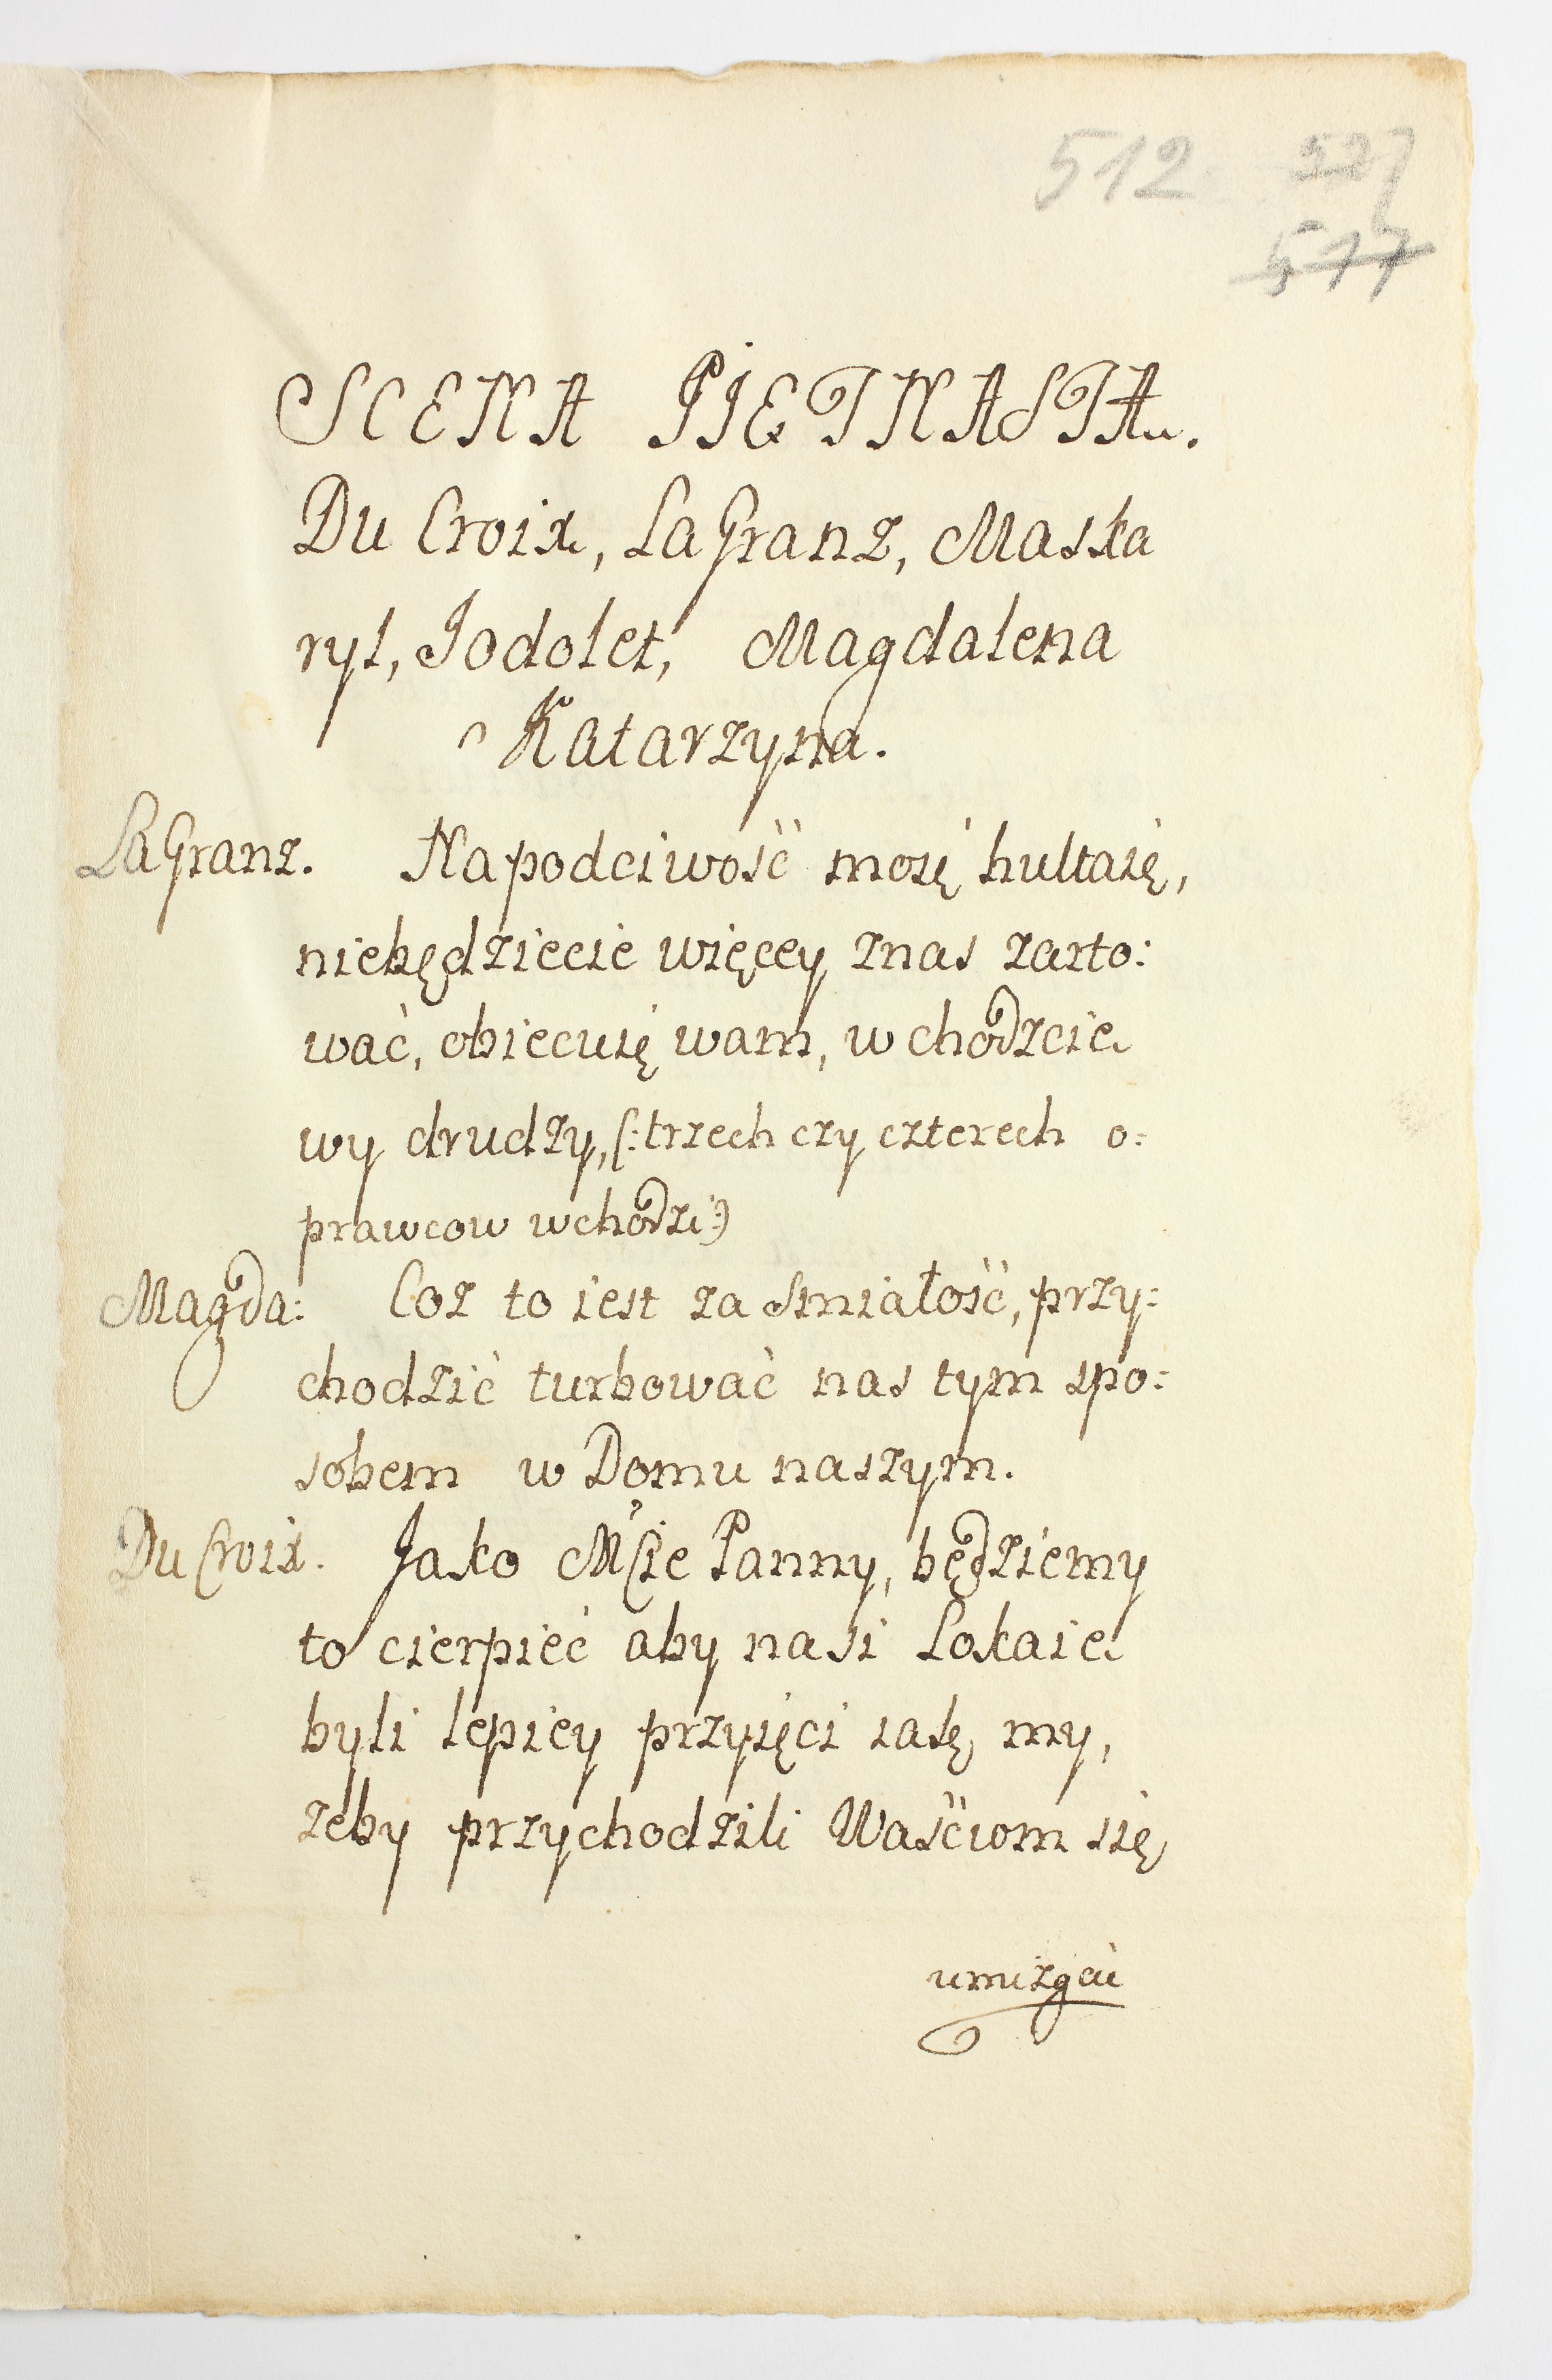 512 527
577
SCENA PIĘTNASTA.
Du Croix, La Granz, Maska
ryl, Jodolet, Magdalena
Katarzyna.
La Granz. Na podciwość moię hultaię,
niebędziecie więcey znas zarto:
wać, obiecuię wam, w chodzcie
wy drudzy, (: trzech czy czterech o:
prawcow wchodzi :)
Magda: Coz to iest za smiałość, przy:
chodzić turbować nas tym spo:
sobem w Domu naszym.
Du Croix. Jako Mcie Panny, będziemy
to cierpieć aby nasi Lokaie
byli lepiey przyięci iak my,
zeby przychodzili Waściom się
umizgać